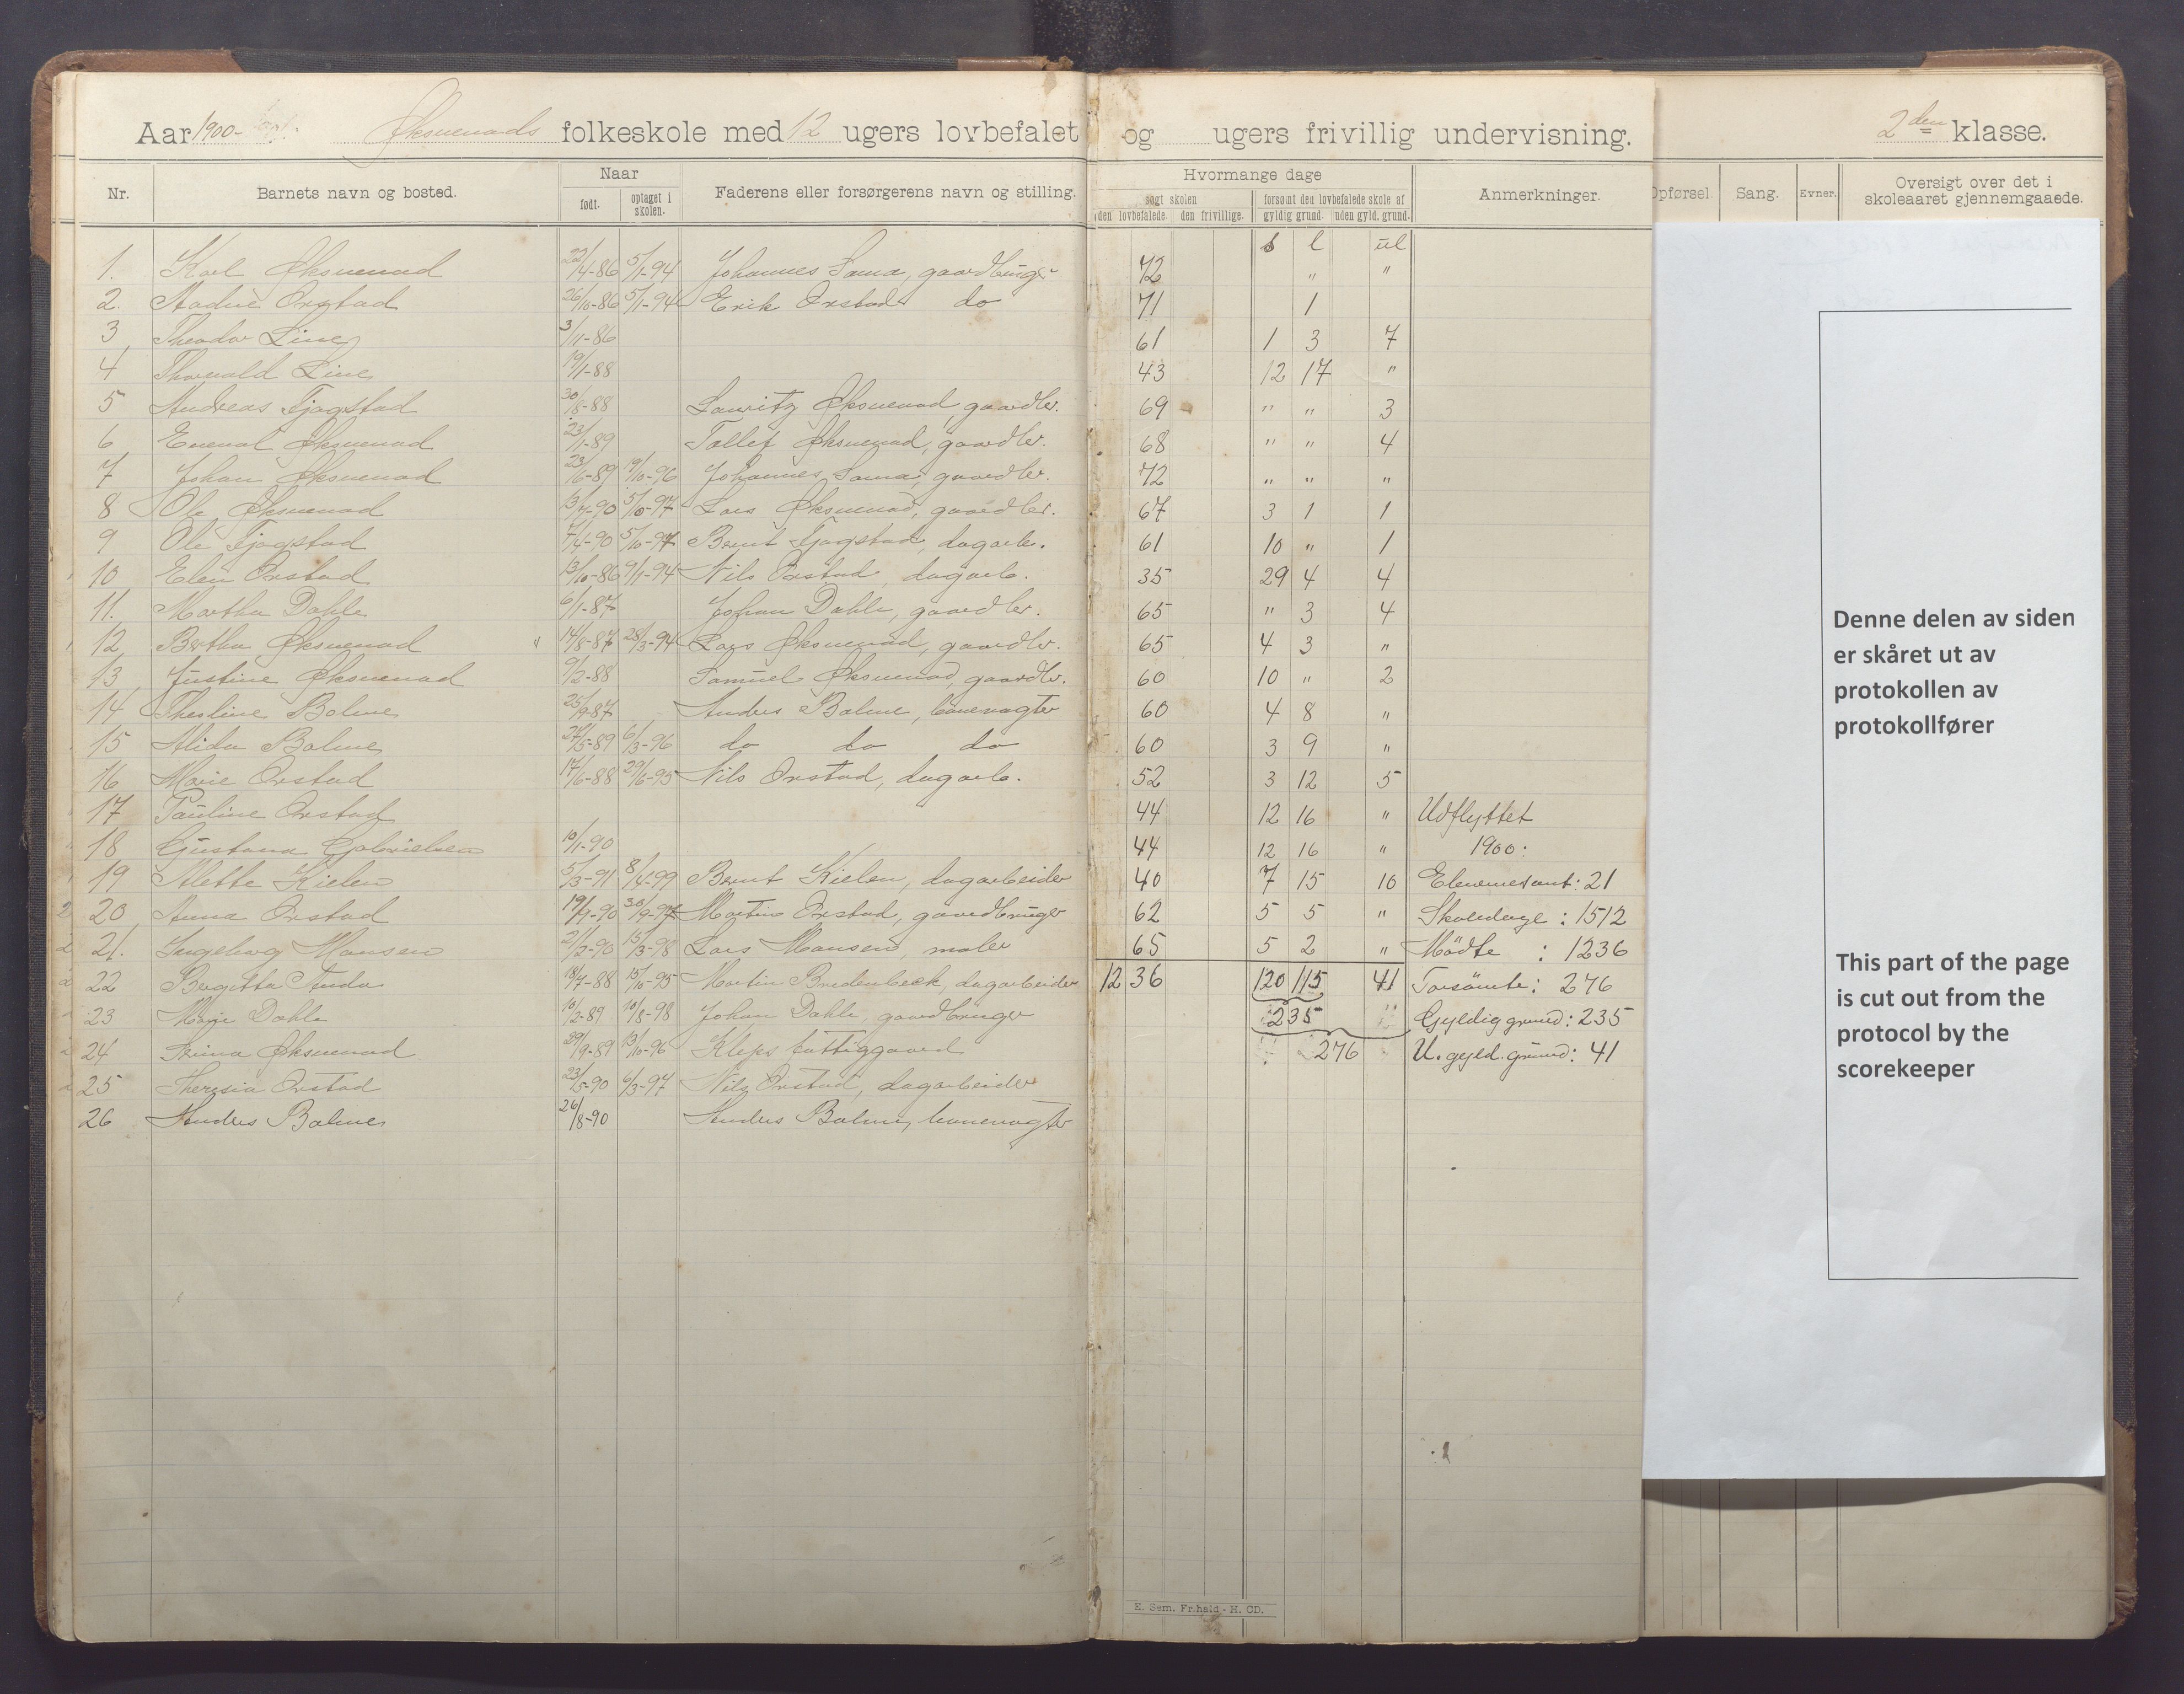 Aar 1900- Øksnevads folkeskole med 12 ugers lovbefalet og ugers frivillig undervisning. 2den klasse.
Nr. Barnets navn og bosted. Naar født. optaget i skolen. Faderens eller forsørgerens navn og stilling. Hvormange dage søgt skolen den lovbefalede. den frivillige. forsømt den lovbefalede skole af gyldig grund. uden gyld. grund. Anmerkninger. Opførsel. Sang. Evner. Oversigt over det i skoleaaret gjennemgaaede.
s l ul
1. Karl Øksnevad 22/4-86 5/1-94 Johannes Sama, gaardbruger 72 " "
2. Aadne Orstad 26/10-86 5/1-94 Erik Orstad do 71 1
3 Theodor Line 3/11-86 61 1 3 7
4 Thorvald Line 19/1-88 43 12 17 "
5 Andreas Tjøgstad 30/8-88 Lauritz Øksnevad, gaardbr. 69 " " 3
6 Enevald Øksnevad 23/1-89 Tollef Øksnevad, gaardbr. 68 " " 4
7 Johan Øksnevad 23/6-89 19/10-96 Johannes Sama, gaardbr. 72 " " "
8 Ole Øksnevad 13/7-90 5/10-97 Lars Øksnevad, gaardbr. 67 3 1 1
9 Ole Tjøgstad 7/4-90 5/10-97 Bernt Tjøgstad, dagarb. 61 10 " 1
10 Elen Orstad 13/10-86 9/1-94 Nils Orstad, dagarb. 35 29 4 4
11. Martha Dahle 6/1-87 Johan Dahle, gaardbr. 65 " 3 4
12 Bertha Øksnevad " 14/8-87 28/3-94 Lars Øksnevad, gaardbr. 65 4 3 "
13 Justine Øksnevad 9/2-88 Samuel Øksnevad, gaardbr. 60 10 " 2
14 Thesline Bolme 25/9-87 Anders Bolme, banevogter 60 4 8 "
15 Alida Bolme 24/5-89 6/3-96 do do do 60 3 9 "
16 Marie Orstad 17/6-88 29/6-95 Nils Orstad, dagarb. 52 3 12 5
17 Pauline Orstad 44 12 16 " Udflyttet
18 Gustava Gabrielsen 10/1-90 44 12 16 " 1900:
19 Alette Kielen 5/3-91 8/4-99 Bernt Kielen, dagarbeider 40 7 15 10 Elevernes ant: 21
20 Anna Orstad 19/9-90 30/9-97 Martin Orstad, gaardbruger 62 5 5 " Skoledage : 1512
21. Ingeborg Hansen 21/2-90 15/3-98 Lars Hansen, maler 65 5 2 " Mödte : 1236
22 Birgitta Anda 18/7-88 15/10-95 Martin Bredenbeck, dagarbeider 1236 120 115 41 Forsömte: 276
23 Marie Dahle 10/2-89 10/8-98 Johan Dahle, gaardbruger 235 Gyldig grund: 235
24 Trina Øksnevad 29/9-89 13/10-96 Kleps fattiggaard 276 U. gyld. grund: 41
25 Theresia Orstad 23/5-90 6/3-97 Nils Orstad, dagarbeider
26 Anders Bolme 26/8-90 Anders Bolme, banevogter
E. Sem. Fr.hald - H. CD.
Denne delen av siden
er skåret ut av
protokollen av
protokollfører
This part of the page
is cut out from the
protocol by the
scorekeeper